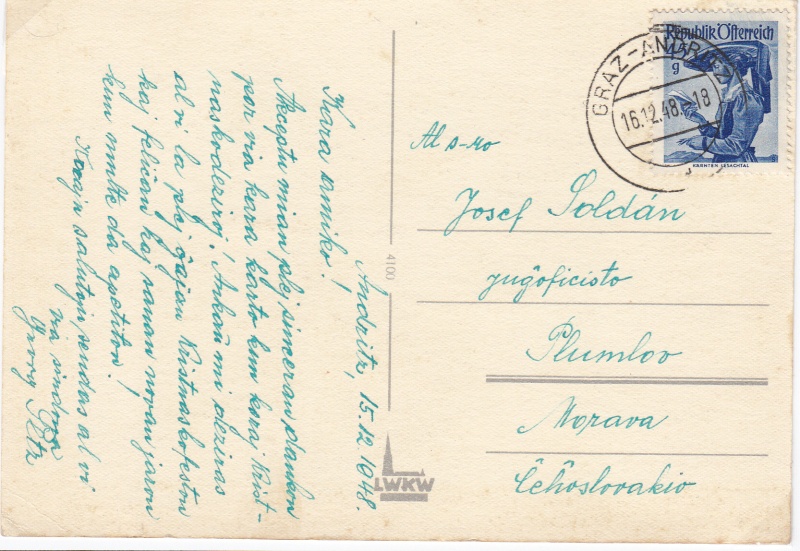 Andritz, 15.12.1948.
Kara amiko!
Akceptu mian plej sinceran dankon
por via kara karto kun koraj Krist-
naskodeziroj! Ankaŭ mi deziras
al vi la plej ĝajan Kristnaskofeston
kaj feliĉan kaj sanan novan jaron
kun multe da apetiton!
Korajn salutojn sendas al vi
via
Georg
4100
LWKW
Republik Österreich
g
KÄRNTEN LESACHTAL
GRAZ-ANDRITZ
16.12.48.-18
Al s-ro
Josef Soldán
juĝoficisto
Plumlov
Morava
Ĉeĥoslovakio